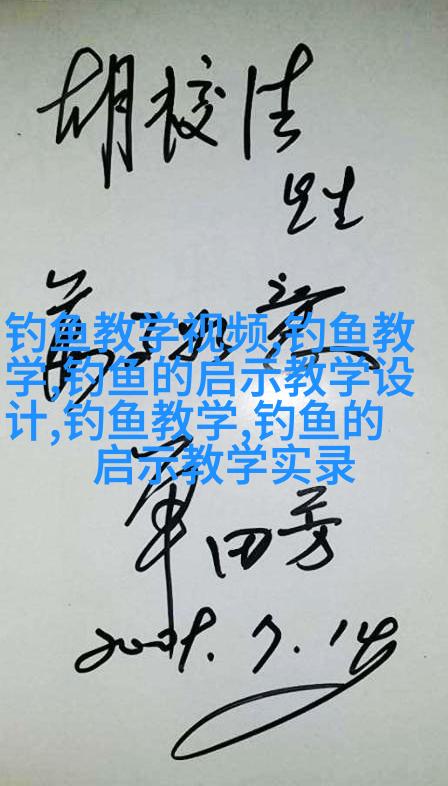 胡校法
钓鱼教学视频,钓鱼教
学,钓鱼的启示教学设
计,钓鱼教学,钓鱼的
启示教学实录
单田芳